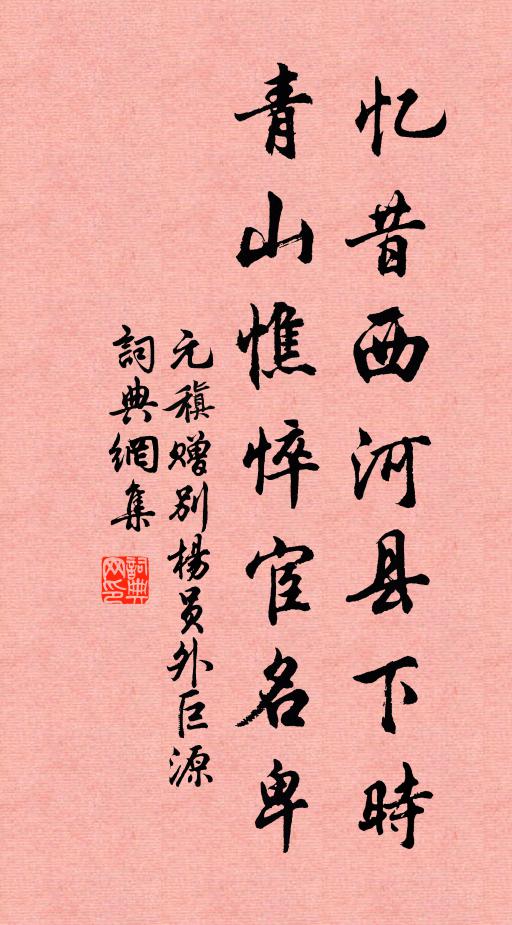 忆昔西河县下時
青山憔悴宦名卑
元稹赠别楊员外巨源
詞典網集
詞典網印